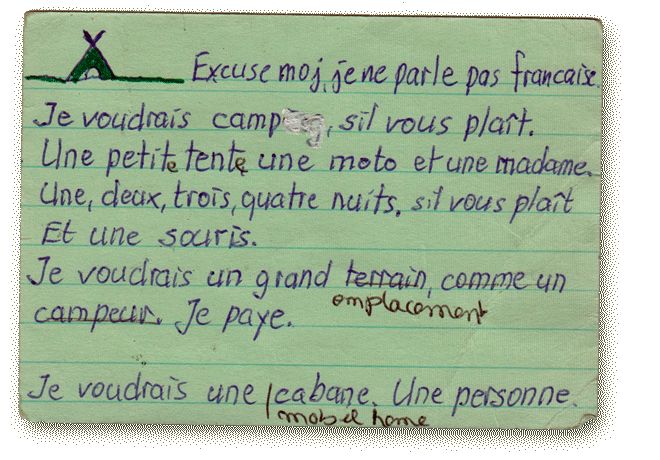 Excuse moj, je ne parle pas francaise.
Je voudrais camping, sil vous plaît.
Une petite tente une moto et une madame.
Une, deux, trois, quatre nuits, sil vous plaît
Et une souris.
Je voudrais un grand terrain, comme un
emplacement
campeur. Je paye.
Je voudrais une cabane. Une personne.
mobel home